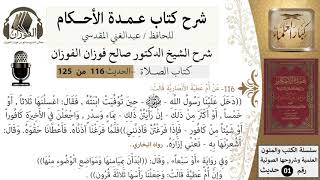 شرح كتاب عمدة الأحكام
للحافظ / عبدالغني المقدسي
شرح الشيخ الدكتور صالح فوزان الفوزان
كتاب الصلاة - الحديث 116 من 125
الفوزان
116- عَنْ أُمِّ عَطِيَّةَ الْأَنْصَارِيَّةِ قَالَتْ:
((دَخَلَ عَلَيْنَا رَسُولُ اللَّهِ - ﷺ - حِينَ تُوُفِّيَتْ ابْنَتُهُ، فَقَالَ: اغْسِلْنَهَا ثَلَاثًا، أَوْ
خَمْسًا، أَوْ أَكْثَرَ مِنْ ذَلِكَ - إنْ رَأَيْتُنَّ ذَلِكَ - بِمَاءٍ وَسِدْرٍ، وَاجْعَلْنَ فِي الْأَخِيرَةِ كَافُورًا
أَوْ شَيْئًا مِنْ كَافُورٍ - فَإِذَا فَرَغْتُنَّ فَآذِنَّنِي فَلَمَّا فَرَغْنَا آذَنَّاهُ. فَأَعْطَانَا حَقْوَهُ. وَقَالَ:
رواه البخاري.
وَفِي رِوَايَةٍ ((أَوْ سَبْعًا، وَقَالَ: ابْدَأْنَ بِمَيَامِنِهَا وَمَوَاضِعِ الْوُضُوءِ مِنْهَا))
وَإِنَّ أُمَّ عَطِيَّةَ قَالَتْ: وَجَعَلْنَا رَأْسَهَا ثَلَاثَةَ قُرُونٍ))
سلسلة الكتب والمتون
العلمية وشروحها الصوتية
رقم 01 حديث